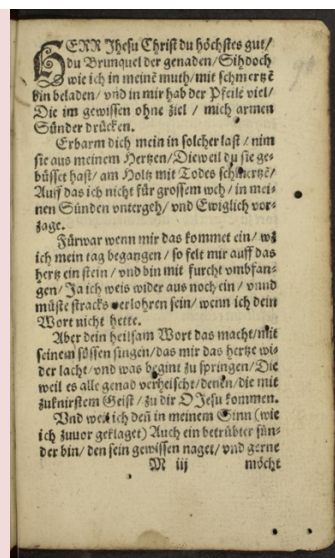 HERR Jhesu Christ du höchstes gut/
du Brunquel der genaden/ Sihdoch
wie ich in meinē muth/ mit schmertzē
bin beladen/ vnd in mir hab der Pfeile viel/
Die im gewissen ohne ziel / mich armen
Sünder drücken.
Erbarm dich mein in solcher last / nim
sie aus meinem Hertzen/ Dieweil du sie ge-
büsset hast/ am Holtz mit Todes schmertzē/
Auff das ich nicht für grossem weh / in mei-
nen Sünden vntergeh/ vnd Ewiglich vor-
zage.
Fürwar wenn mir das kommet ein/ wz
ich mein tag begangen / so felt mir auff das
hertz ein stein / vnd bin mit furcht vmbfan-
gen/ Ja ich weis wider aus noch ein / vnnd
müste stracks verlohren sein/ wenn ich dein
Wort nicht hette.
Aber dein heilsam Wort das macht/ mit
seinem süssen singen/ das mir das hertze wi-
der lacht/ vnd was begint zu springen/ Die
weil es alle genad verheischt/ denen/ die mit
zuknirstem Geist / zu dir O Jesu kommen.
Vnd weil ich deñ in meinem Sinn (wie
ich zuuor geklaget) Auch ein betrübter sün-
der bin/ den sein gewissen naget/ vnd gerne
M iij möcht